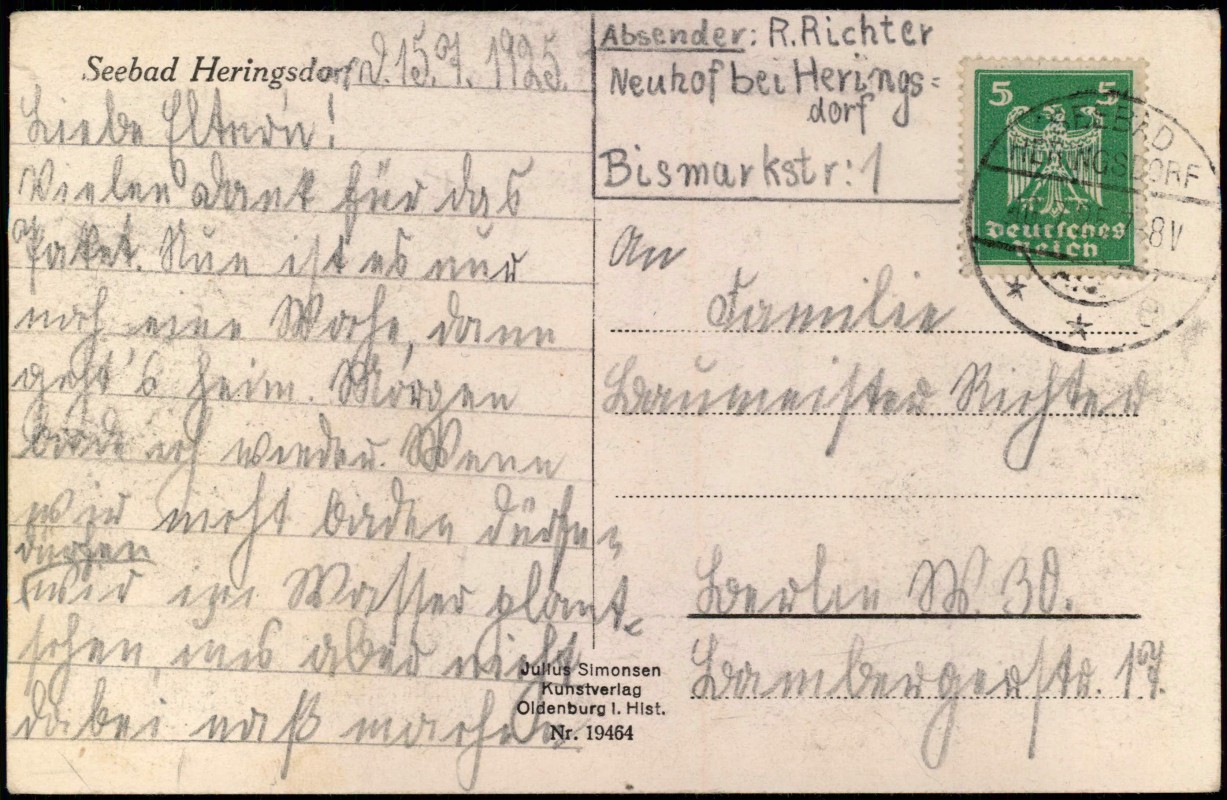 Seebad Heringsdorf d. 15.7. 1925.
Liebe Eltern!
Vielen Dank für das
Paket. Nun ist es nur
noch eine Woche, dann
geht's heim. Morgen
bade ich wieder. Wenn
wir nicht baden dürfen,
dürfen
wir im Wasser plant-
schen, uns aber nicht
dabei naß machen.
Absender: R. Richter
Neuhof bei Herings=
dorf
Bismarkstr: 1
5 5
Deutsches
Reich
SEEBAD
HERINGSDORF
7-8V
e
An
Familie
Baumeister Richter
Berlin W. 30.
Bambergerstr. 17.
Julius Simonsen
Kunstverlag
Oldenburg i. Hlst.
Nr. 19464